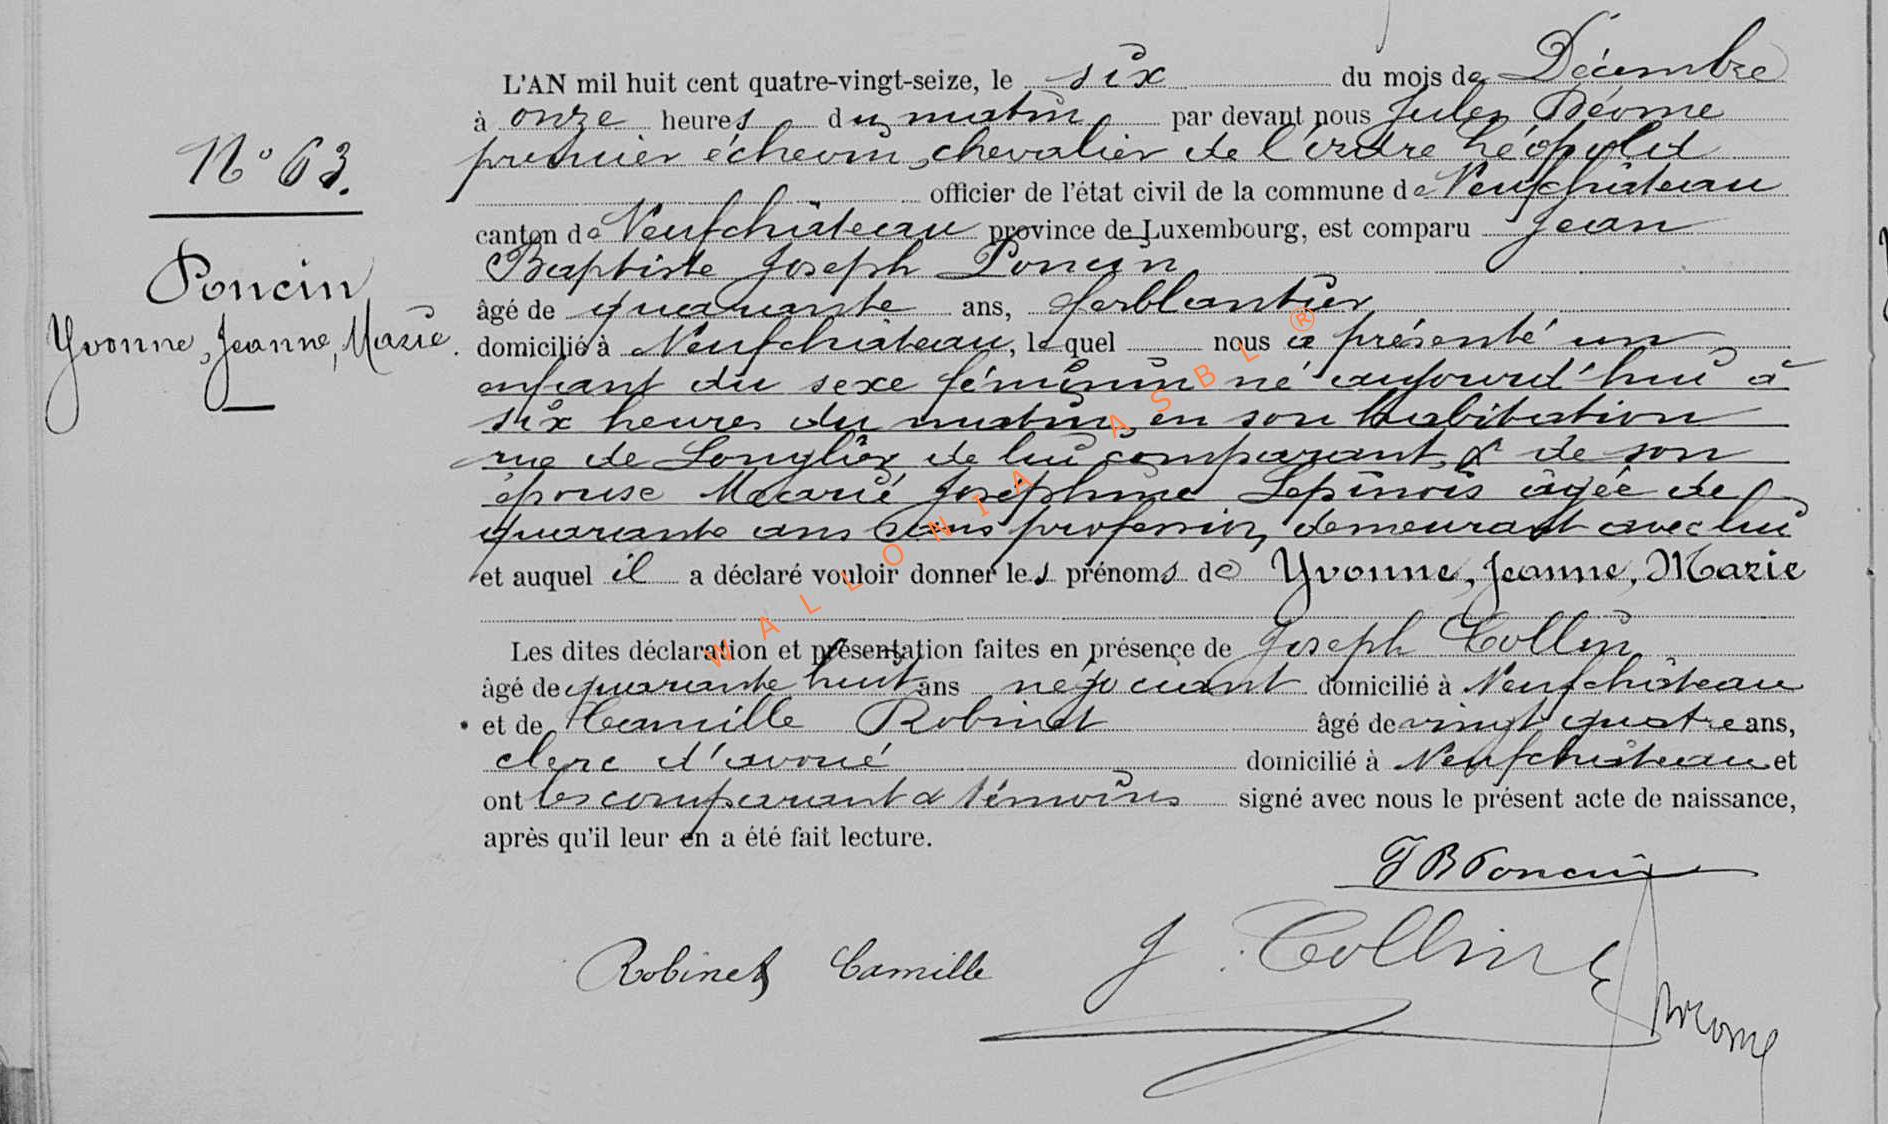 L'AN mil huit cent quatre-vingt-seize, le six du mois de Décembre
à onze heures du matin par devant nous Jules Déome
premier échevin, chevalier de l'ordre Léopold
officier de l'état civil de la commune de Neufchâteau
canton de Neufchâteau province de Luxembourg, est comparu Jean
Baptiste Joseph Poncin
âgé de quarante ans, ferblantier
domicilié à Neufchâteau, lequel nous a présenté un
enfant du sexe féminin né aujourd'hui à
six heures du matin, en son habitation
rue de Longlier de lui comparant & de son
épouse Marie Joséphine Lepinois âgée de
quarante ans sans profession, demeurant avec lui
et auquel il a déclaré vouloir donner les prénoms de Yvonne, Jeanne, Marie
Les dites déclaration et présentation faites en présence de Joseph Collin
âgé de quarante huit ans négociant domicilié à Neufchâteau
et de Camille Robinet âgé de vingt quatre ans,
clerc d'avoué domicilié à Neufchâteau et
ont les comparant & témoins signé avec nous le présent acte de naissance,
après qu'il leur en a été fait lecture.
N° 63.
Poncin
Yvonne, Jeanne, Marie.
JB Poncin
Robinet Camille J. Collin
WALLONIA ASBL ®